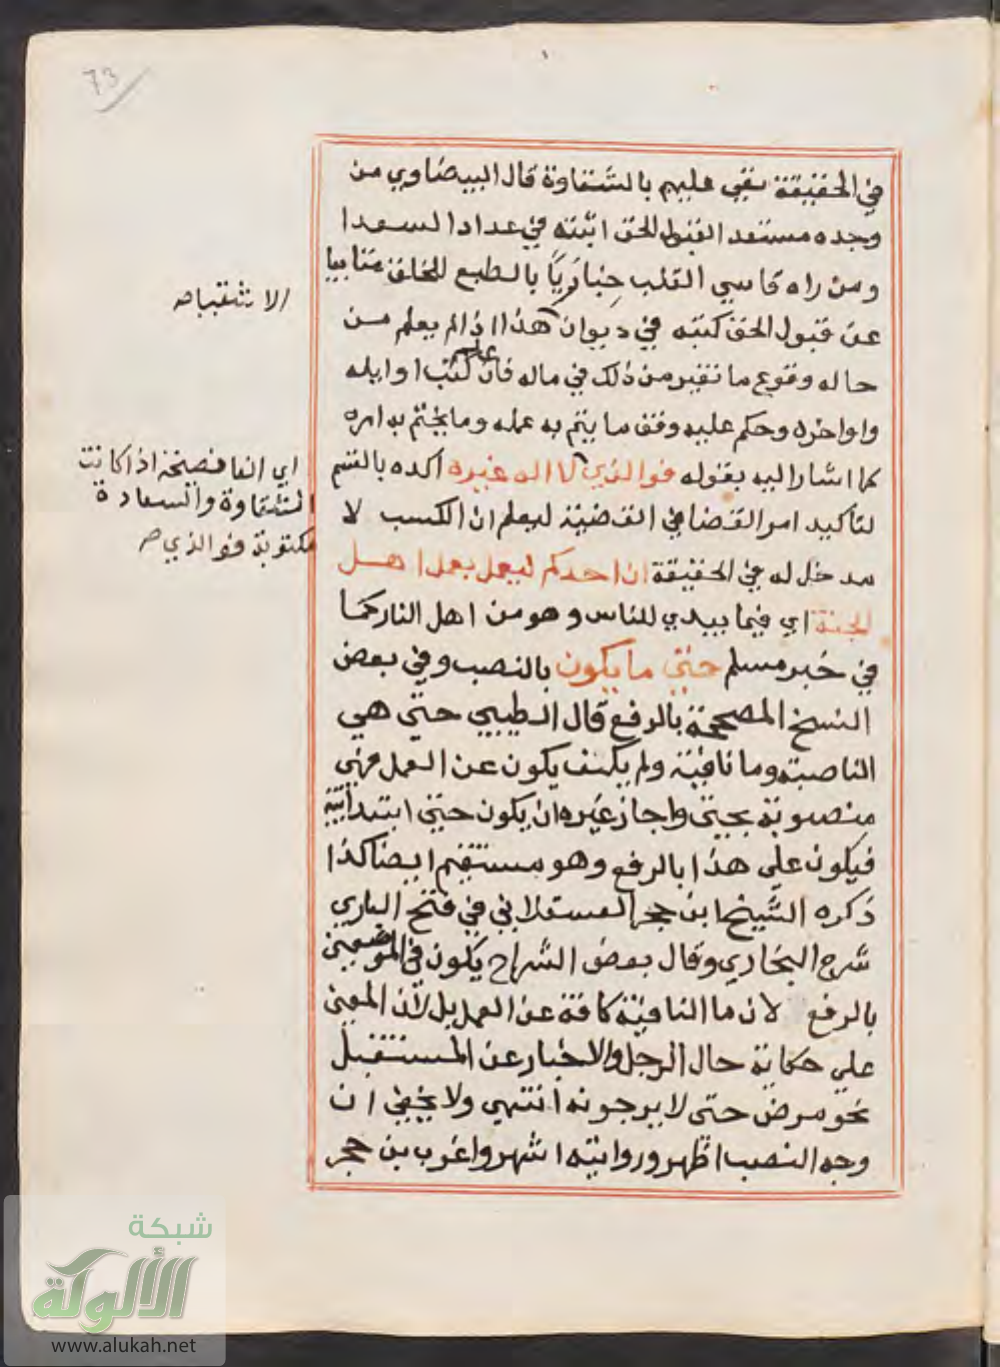 73
في الحقيقة يقي عليهم بالشقاوة قال البيضاوي من
وجده مستعد القبول الحق اثبته في عداد السعدا
ومن راه قاسي القلب بالطبع
عن قبول الحق كتبه في ديوان هذا اذا لم يعلم من
حاله وقوع ما تغير من ذلك في ماله فان علم كتب اوايله
واواخره وحكم عليه وفق ما يتم به عمله وما يختم به امره
كما اشار اليه بقوله فوالذي لا اله غيره اكده بالقسم
لتأكيد امر القضا في القضية ليعلم ان الكسب لا
مدخل له في الحقيقة ان احدكم ليعمل بعمل اهل
الجنة اي فيما يبدي للناس وهو من اهل النار كما
في خبر مسلم حتى ما يكون بالنصب وفي بعض
النسخ المصححة بالرفع قال الطيبي حتى هي
الناصبة وما نافية ولم يكف يكون عن العمل فهي
منصوبة بحتى واجاز غيره ان يكون حتى ابتدائية
فيكون على هذا بالرفع وهو مستقيم ايضا كذا
ذكره الشيخ ابن حجر العسقلاني في فتح الباري
شرح البخاري وقال بعض الشراح يكون في الموضعين
بالرفع لان ما النافية كافة عن العمل بل لان المعنى
على حكاية حال الرجل والاخبار عن المستقبل
نحو مرض حتى لا يرجونه انتهى ولا يخفى ان
وجه النصب اظهر وروايته اشهر واغرب بن حجر
اي انفا فصيحة اذا كانت
الشقاوة والسعادة
مكتوبة فوالذي صح
شبكة
الألوكة
www.alukah.net